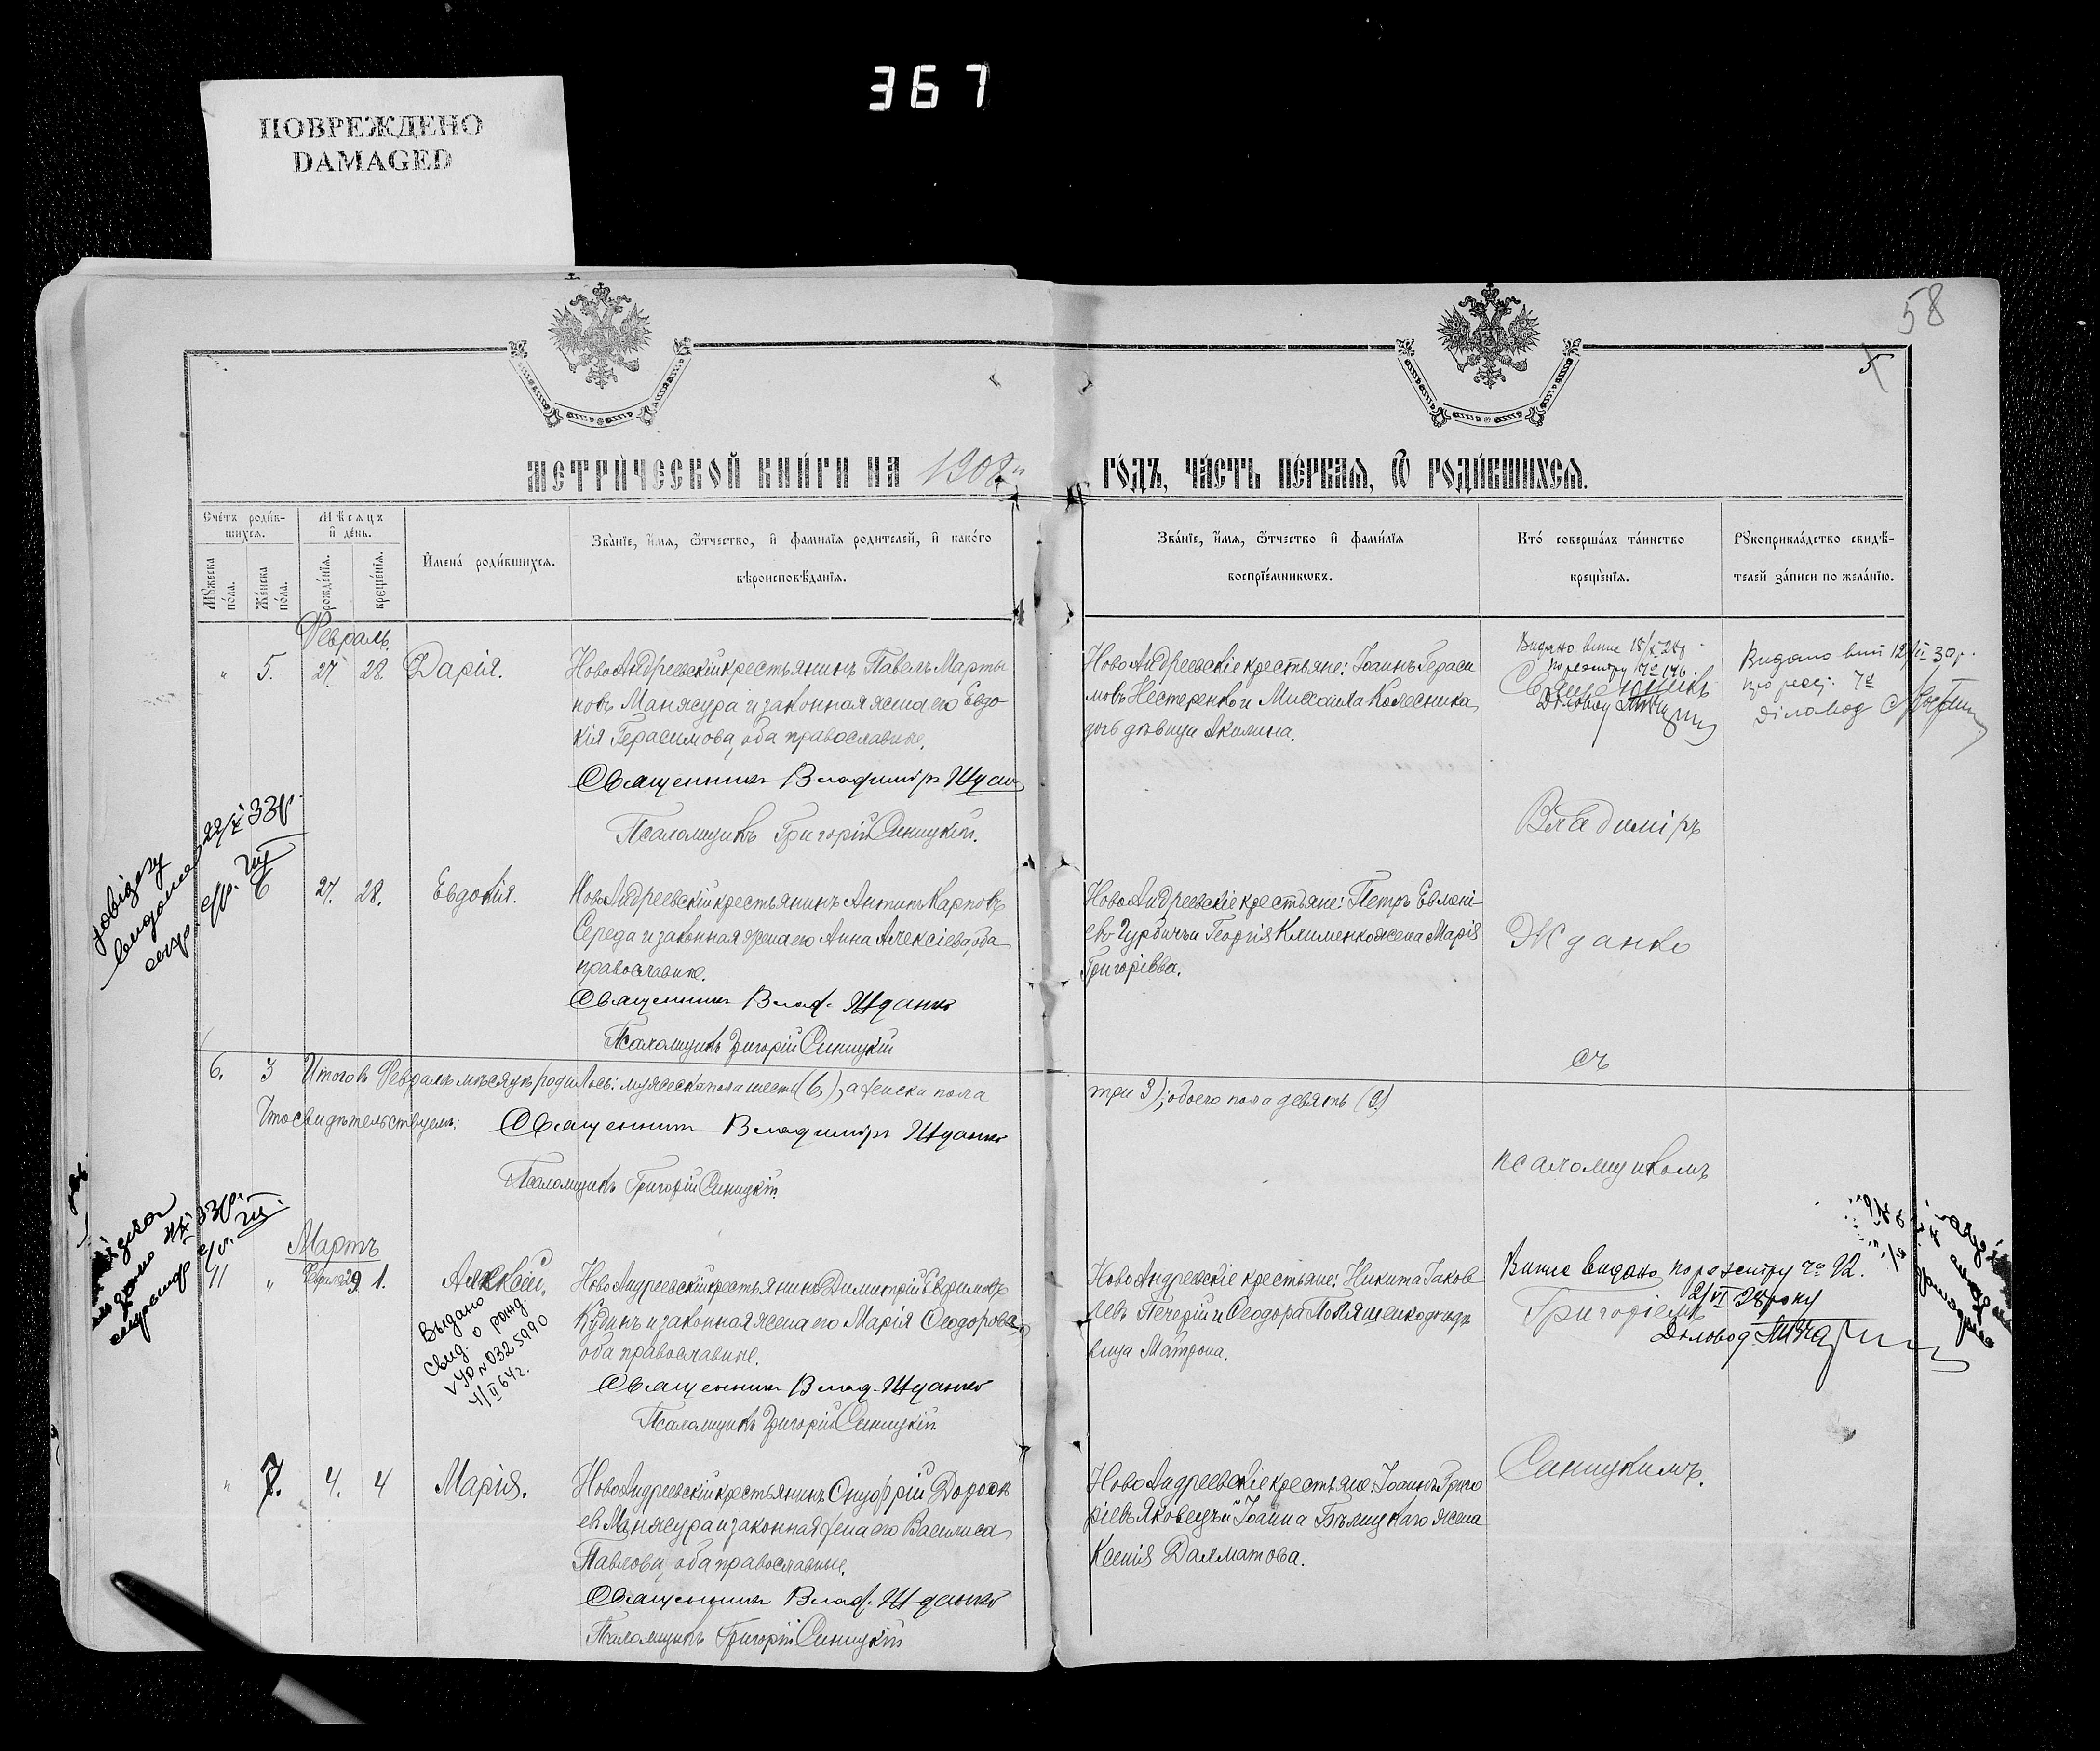 367
ПОВРЕЖДЕНО
DAMAGED
58
5
МЕТРИ́ЧЕСКОЙ КНИ́ГИ НА 1908й ГО́ДЪ, ЧА́СТЬ ПЕ́РВАЯ, Ѿ РОДИ́ВШИХСЯ.
Сче́тъ роди́в-
шихся.
Мꙋ́жеска по́ла.
Же́нска по́ла.
Мѣ́сяцъ и де́нь.
рожде́нїя.
креще́нїя.
И҆мена̀ роди́вшихся.
Зва́нїе, и҆́мя, ѻ҆́тчество, и҆ фамилїя родителей, и҆ како́го
вѣроисповѣ́данїя.
Зва́нїе, и҆́мя, ѻ҆́тчество и҆ фами́лїя
воспрїе́мникѡвъ.
Кто̀ соверша́лъ та́инство
креще́нїя.
Рꙋкоприкла́дство свидѣ́-
телей за́писи по жела́нїю.
Февраль.
" 5. 27. 28 Дарія.
НовоАндреевскій крестьянинъ Павелъ Марты
новъ Манжура и законная жена его Евдо-
кія Герасимова, оба православные.
Священникъ Владиміръ Жданко
Псаломщикъ Григорій Синицкій.
НовоАндреевскіе крестьяне: Іоаннъ Гераси
мовъ Нестеренко и Михаила Колесника
дочь дѣвица Акилина.
Діловод
Видано 12/VI 30 р.
Діловод
Владиміръ
22/V 33 р.
6 27. 28. Евдокія.
НовоАндреевскій крестьянинъ Антипъ Карповъ
Середа и законная жена его Анна Алексіева, оба
православные.
Священникъ Влад. Жданко
Псаломщикъ Григорій Синицкій
НовоАндреевскіе крестьяне: Петръ Евлогі-
евъ и Георгія Клименко жена Марія
Григоріева.
Жданко
6. 3 Итого въ Февралѣ мѣсяцѣ родилось: мужеска пола шесть (6), а женска пола
три 3); обоего пола девять (9.)
съ
Что свидѣтельствуемъ: Священникъ Владиміръ Жданко
Псаломщикъ Григорій Синицкій.
псаломщикомъ
Мартъ
11 " 29 1. Алексѣй.
Выдано
свид. о рожд.
V УР № 0325990
4/II 64 г.
НовоАндреевскій крестьянинъ Димитрій Евфимовъ
Кудинъ и законная жена его Марія Ѳеодорова,
оба православные.
Священникъ Влад. Жданко
Псаломщикъ Григорій Синицкій.
НовоАндреевскіе крестьяне: Никита Іаков
левъ Печерій и Ѳеодора дочь дѣ
вица Матрона.
Витяг видано по реєстру № 92.
2/VI 28 року
Григоріемъ
Діловод
" 7. 4. 4 Марія.
НовоАндреевскій крестьянинъ Онуфрій Дороѳе
евъ Манжура и законная жена его Василиса
Павлова, оба православные.
Священникъ Влад. Жданко
Псаломщикъ Григорій Синицкій
НовоАндреевскіе крестьяне: Іоаннъ Григо
ріевъ Яковецъ и Іоанна Бѣлицкаго жена
Ксенія Далматова.
Синицкимъ.